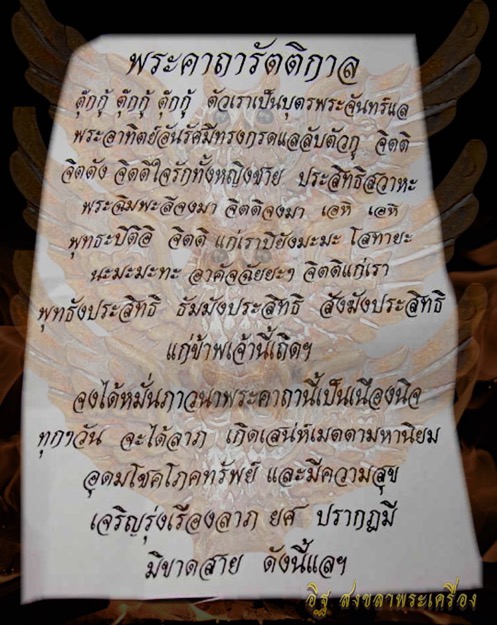 พระคาถารัตติกาล
ตุ๊กกู้ ตุ๊กกู้ ตุ๊กกู้ ตัวเราเป็นบุตรพระจันทร์แล
พระอาทิตย์อันรัศมีทรงกรดแลลับตัวกู จิตติ
จิตตัง จิตตีใจรักทั้งหญิงชาย ประสิทธิสวาหะ
พระฉิมพะลีจงมา จิตติจงมา เอหิ เอหิ
พุทธะปิติอิ จิตติ แก่เราปิยังมะมะ โสทายะ
นะมะมะทะ อาคัจฉัยยะๆ จิตติแก่เรา
พุทธังประสิทธิ ธัมมังประสิทธิ สังฆังประสิทธิ
แก่ข้าพเจ้านี้เถิดฯ
จงได้หมั่นภาวนาพระคาถานี้เป็นเนืองนิจ
ทุกๆวัน จะได้ลาภ เกิดเสน่ห์เมตตามหานิยม
อุดมโชคโภคทรัพย์ และมีความสุข
เจริญรุ่งเรืองลาภ ยศ ปรากฏมี
มิขาดสาย ดังนี้แลฯ
อิฐ สงขลาพระเครื่อง